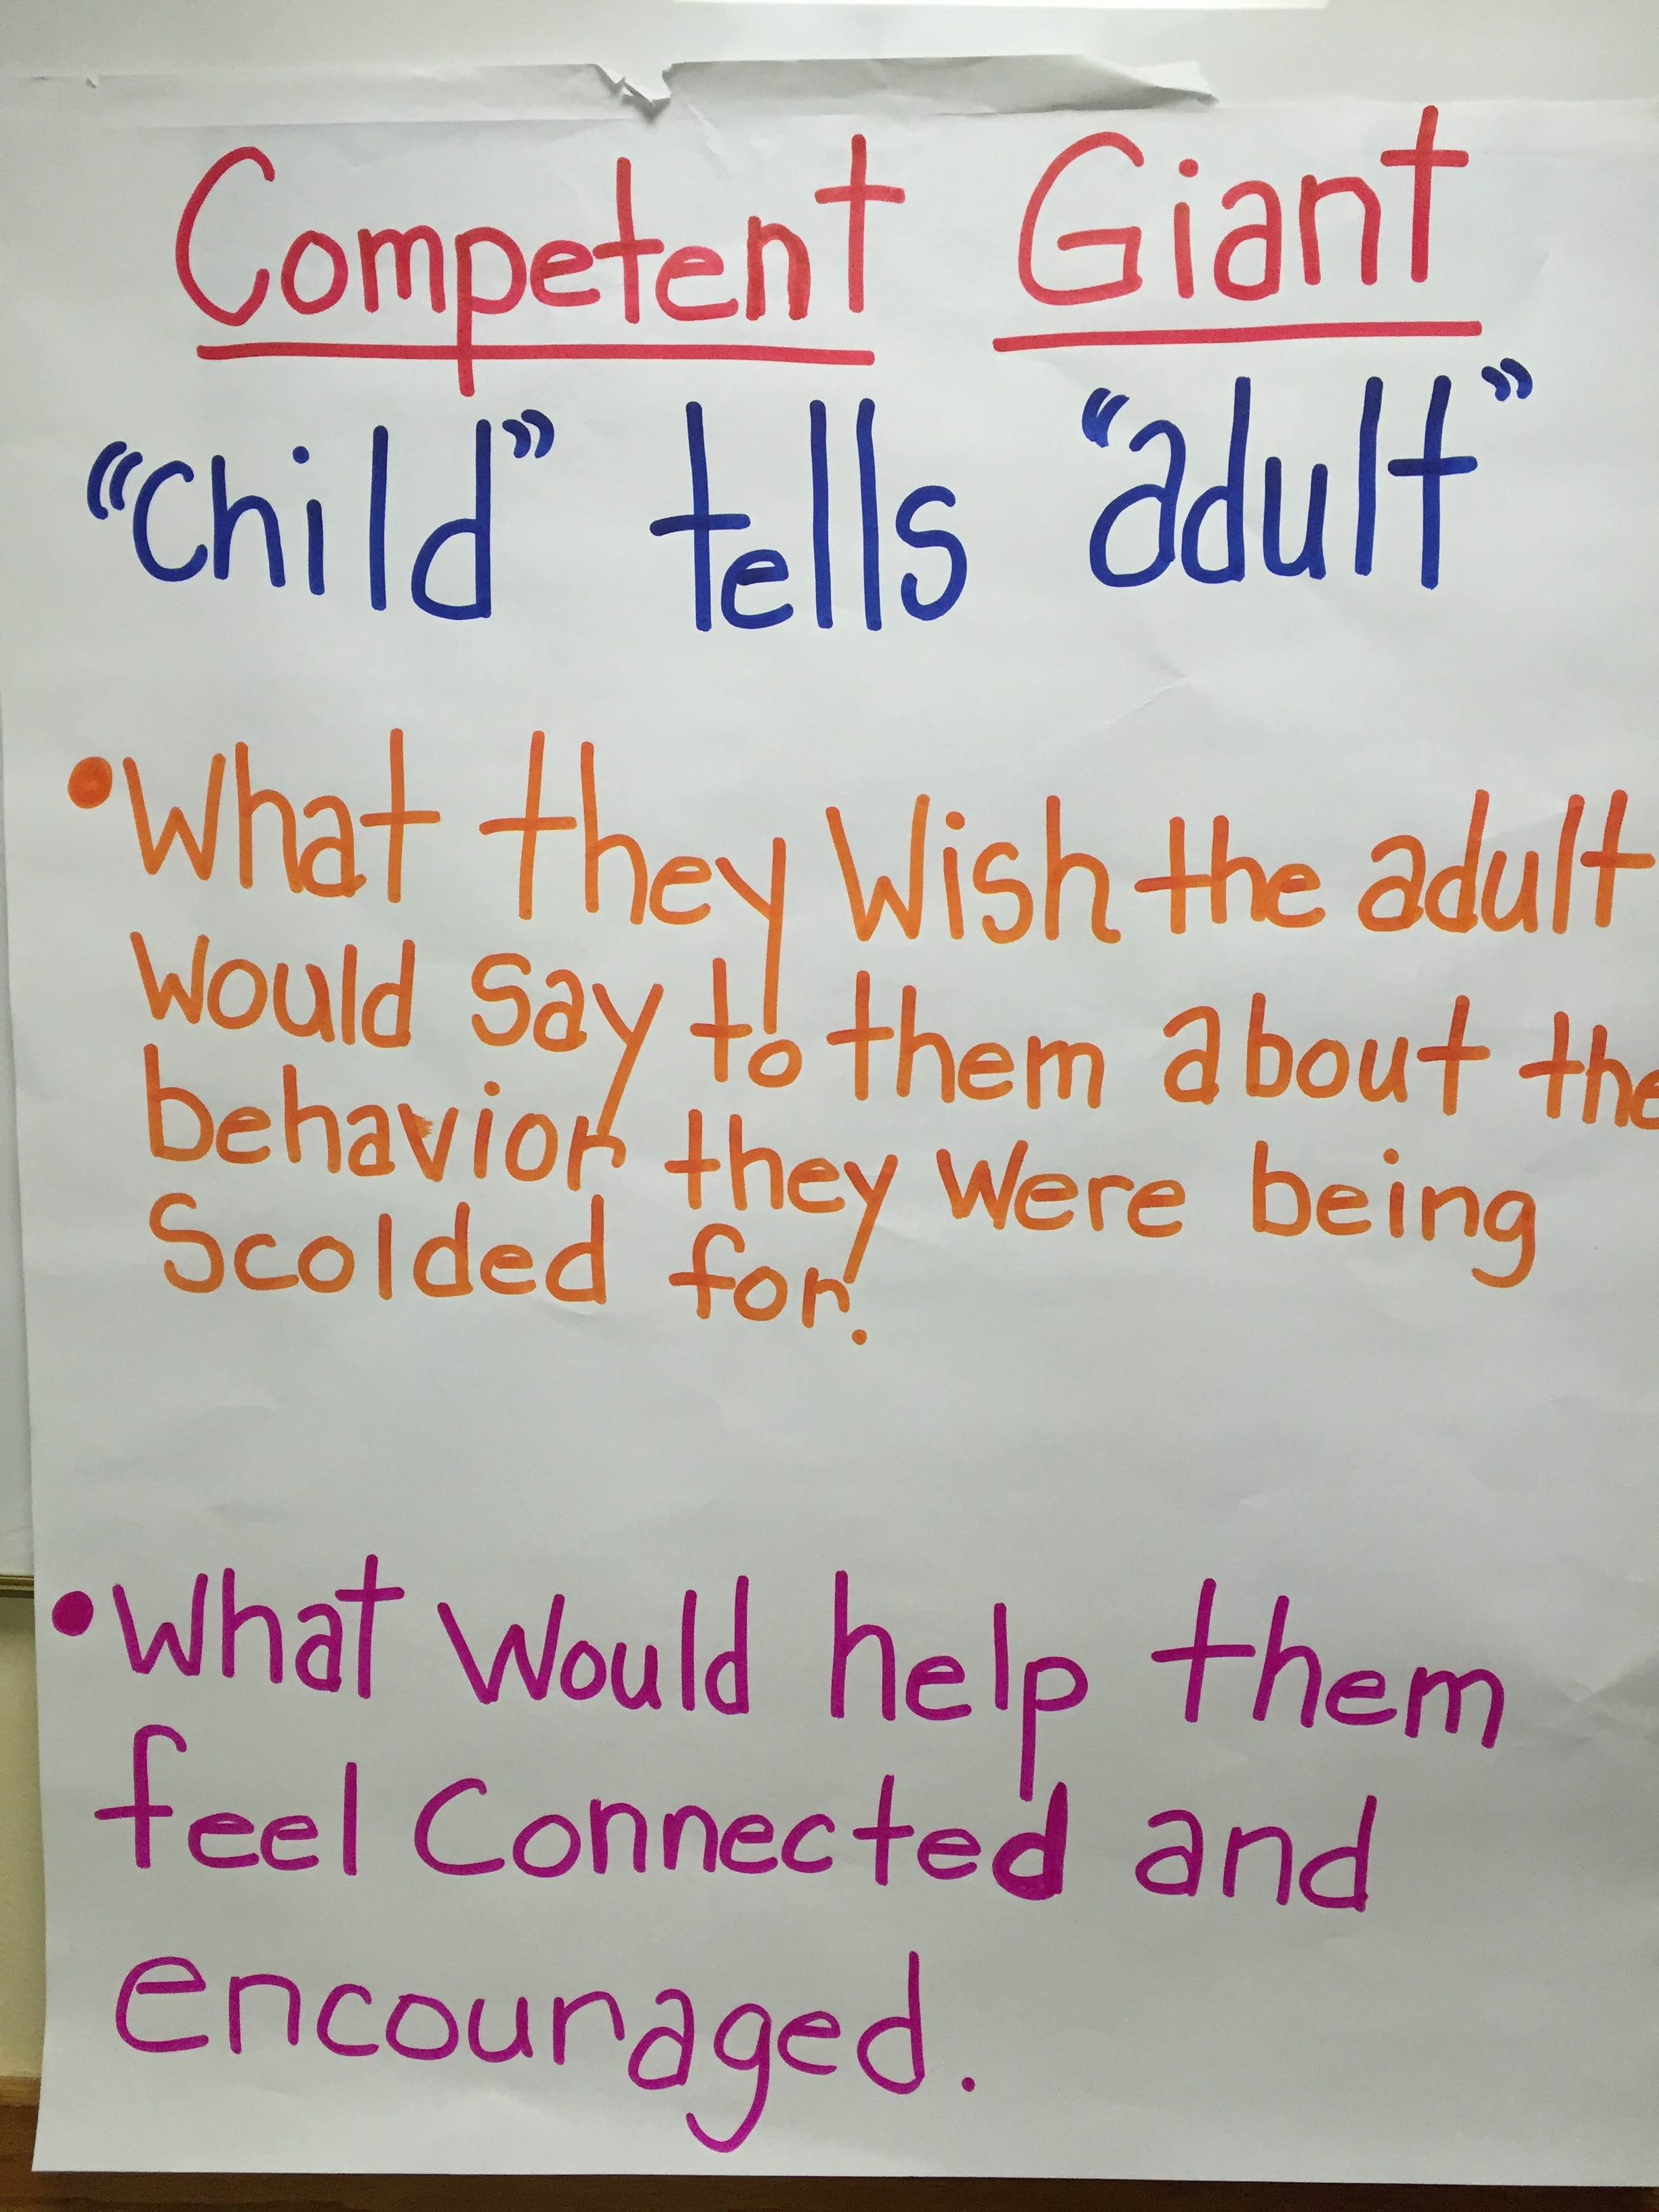 Competent Giant
"child" tells "adult"
• What they Wish the adult
Would say to them about the
behavior they Were being
Scolded for.
• What Would help them
feel Connected and
encouraged.